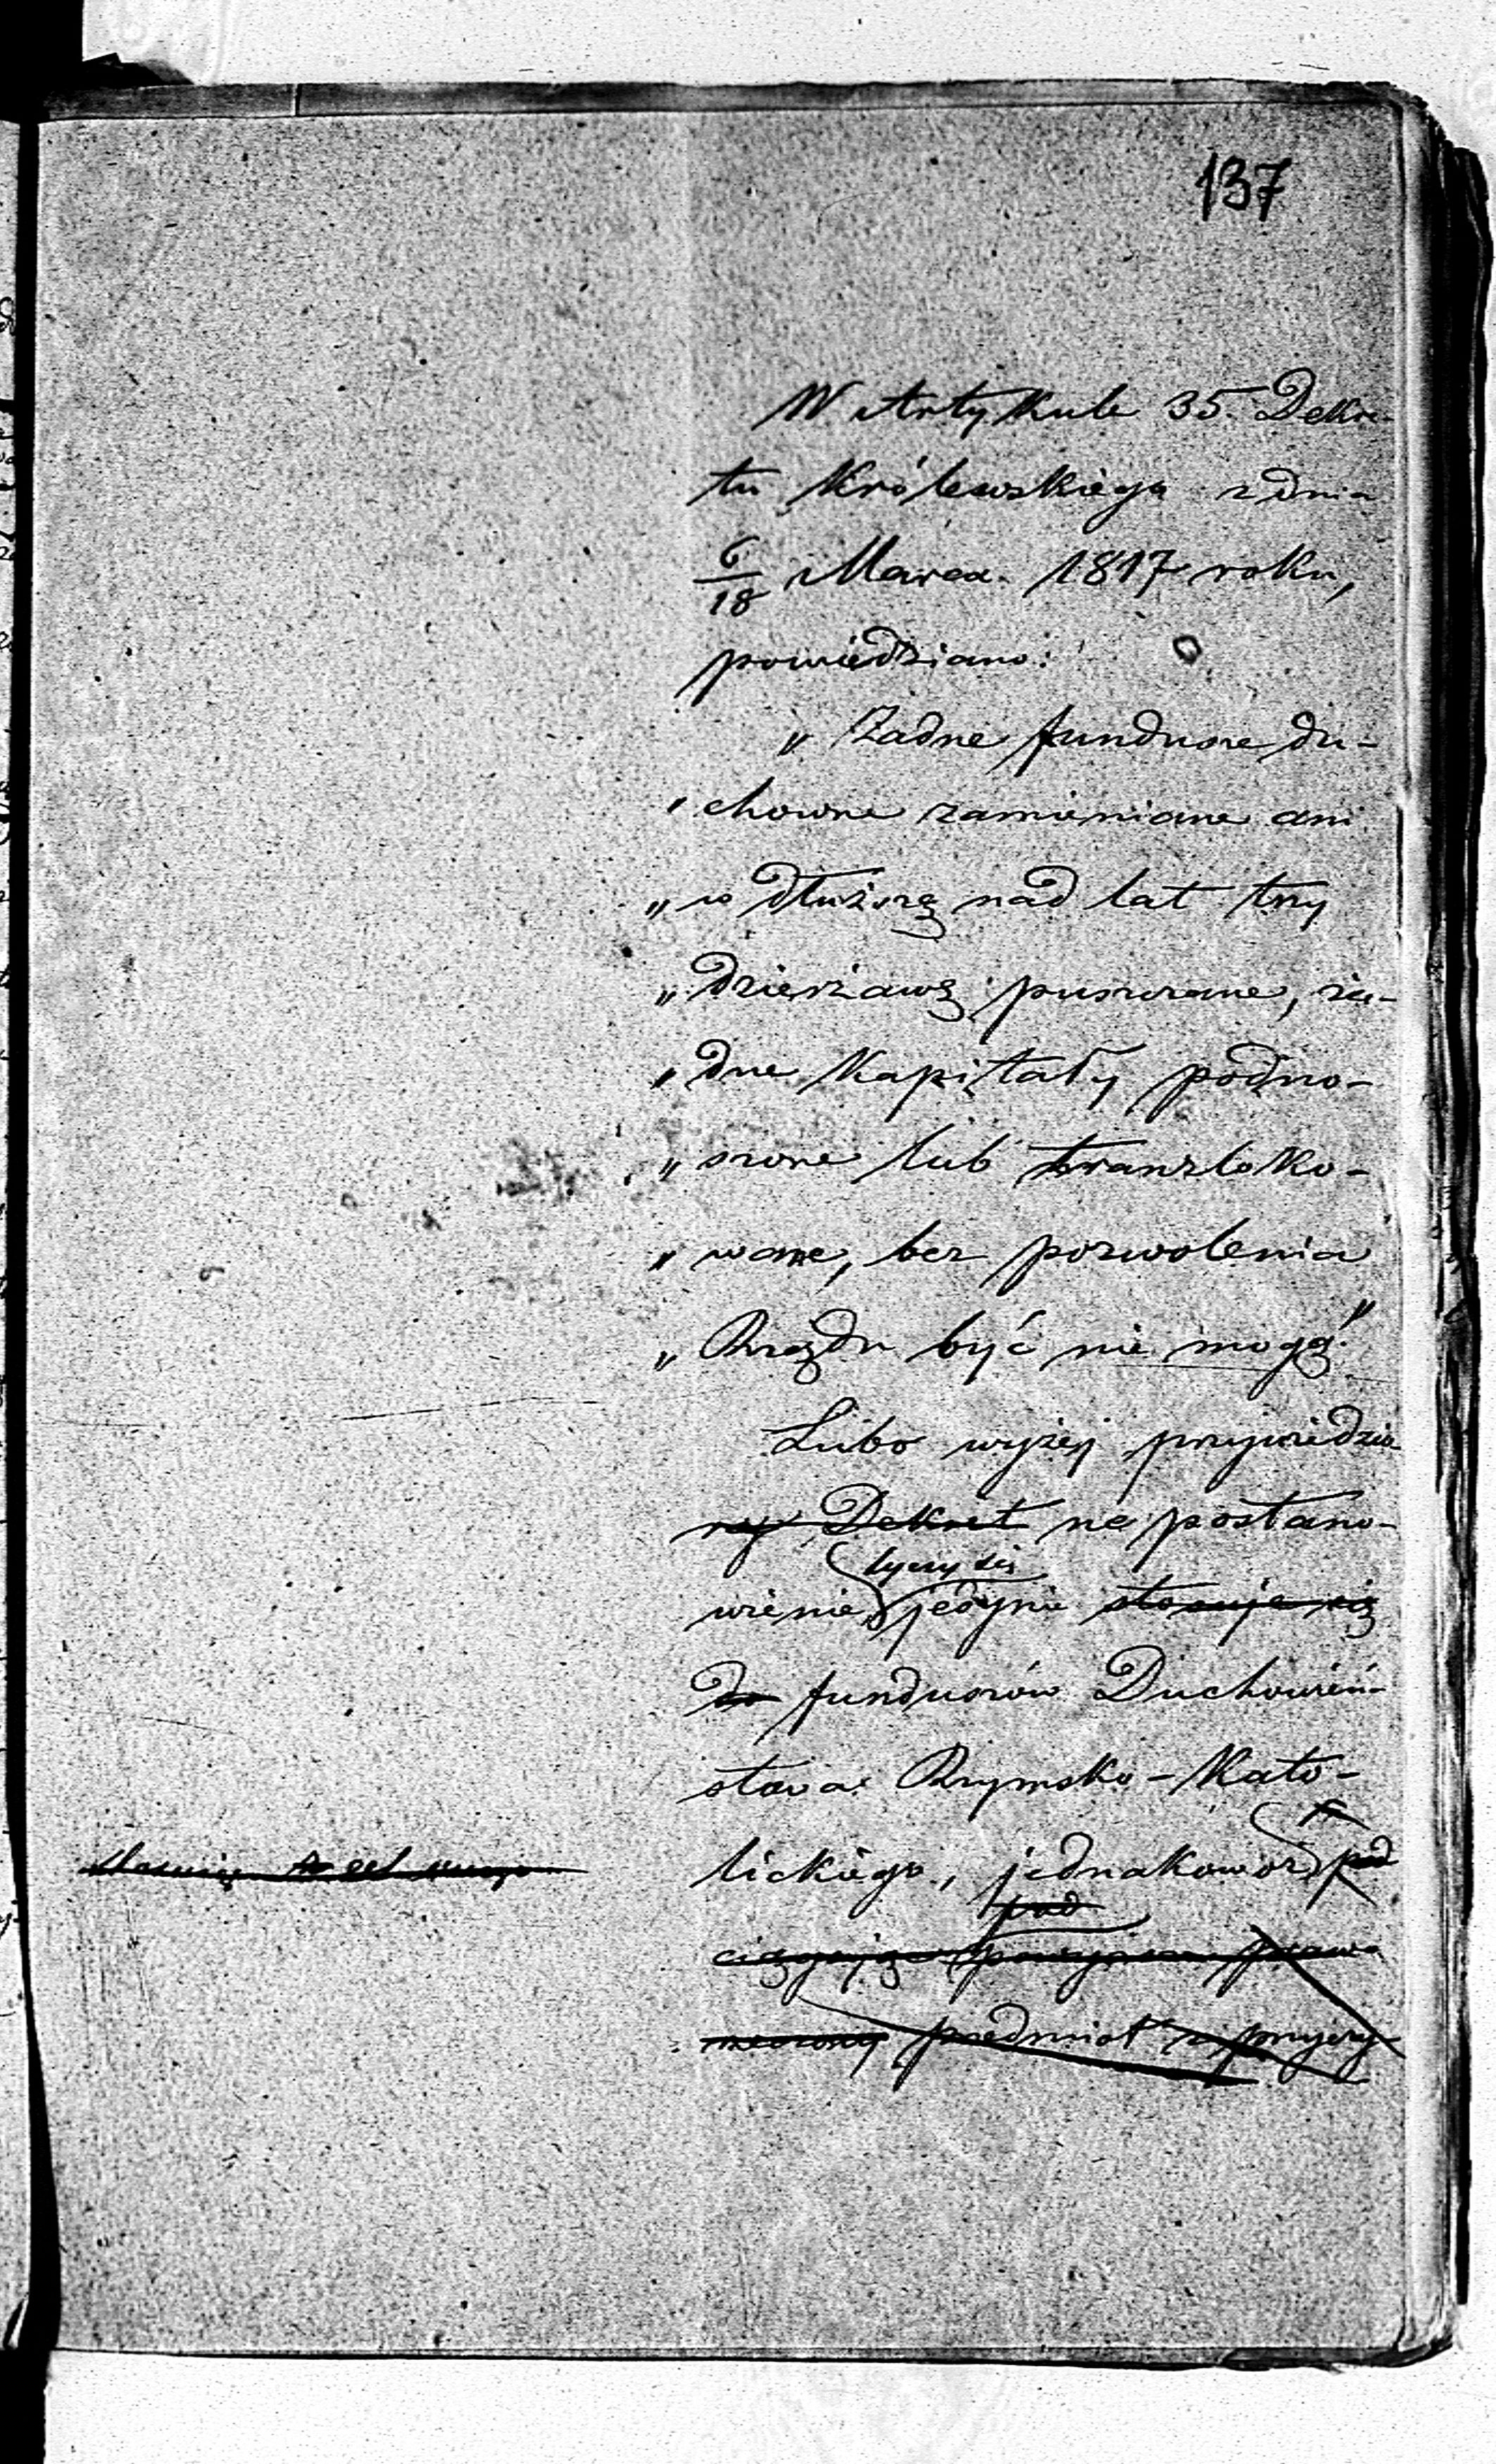 137
W Artykule 35. Dekre-
tu Królewskiego z dnia
6/18 Marca 1817 roku,
powiedziano:
„Żadne fundusze du-
„chowne zamieniane ani
„w dłuższą nad lat trzy
„dzierżawę puszczane, ża-
„dne kapitały podno-
„szone lub translako-
„wane, bez pozwolenia
„Rządu być nie mogą."
Lubo wyżej przywiedzio
ny Dekret na postano-
tyczy się
wienie jedynie stosuje się
do funduszów Duchowień-
stwa Rzymsko-Kato-
lickiego, jednakowoż pod
pod
prawa
przedmiot z przyczy